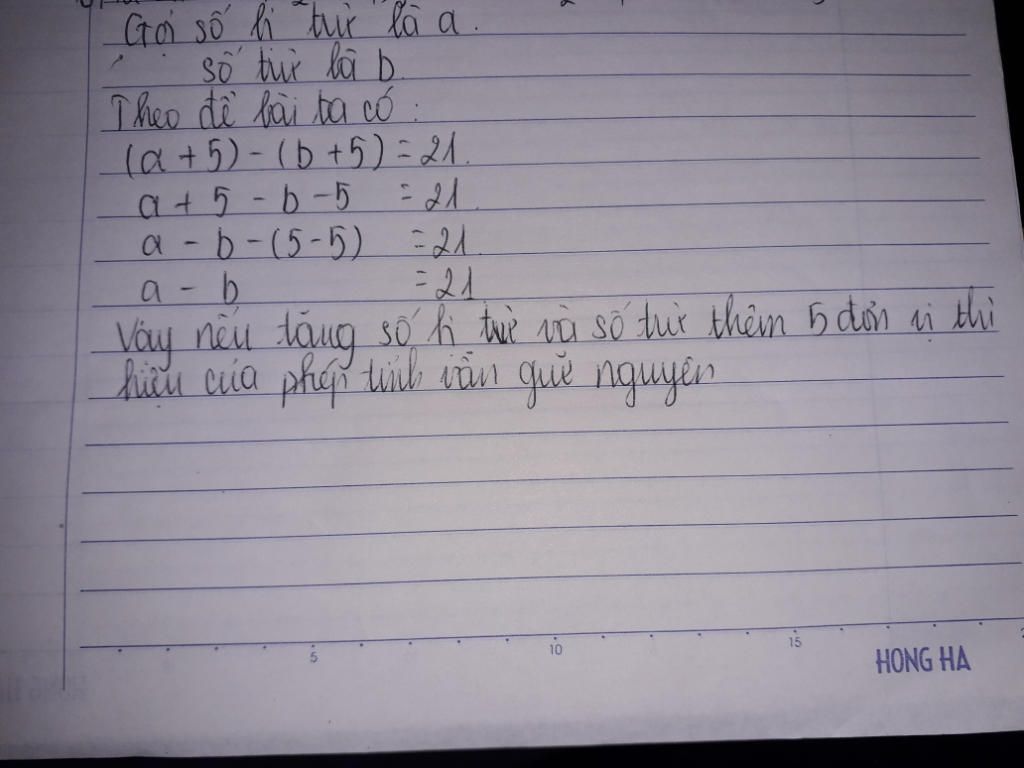 Gọi số bị trừ là a.
số trừ là b.
Theo đề bài ta có:
(a + 5) - (b + 5) = 21.
a + 5 - b - 5 = 21.
a - b - (5 - 5) = 21
a - b = 21
Vậy nếu tăng số bị trừ và số trừ thêm 5 đơn vị thì
hiệu của phép tính vẫn giữ nguyên
5 10 15
HONG HA